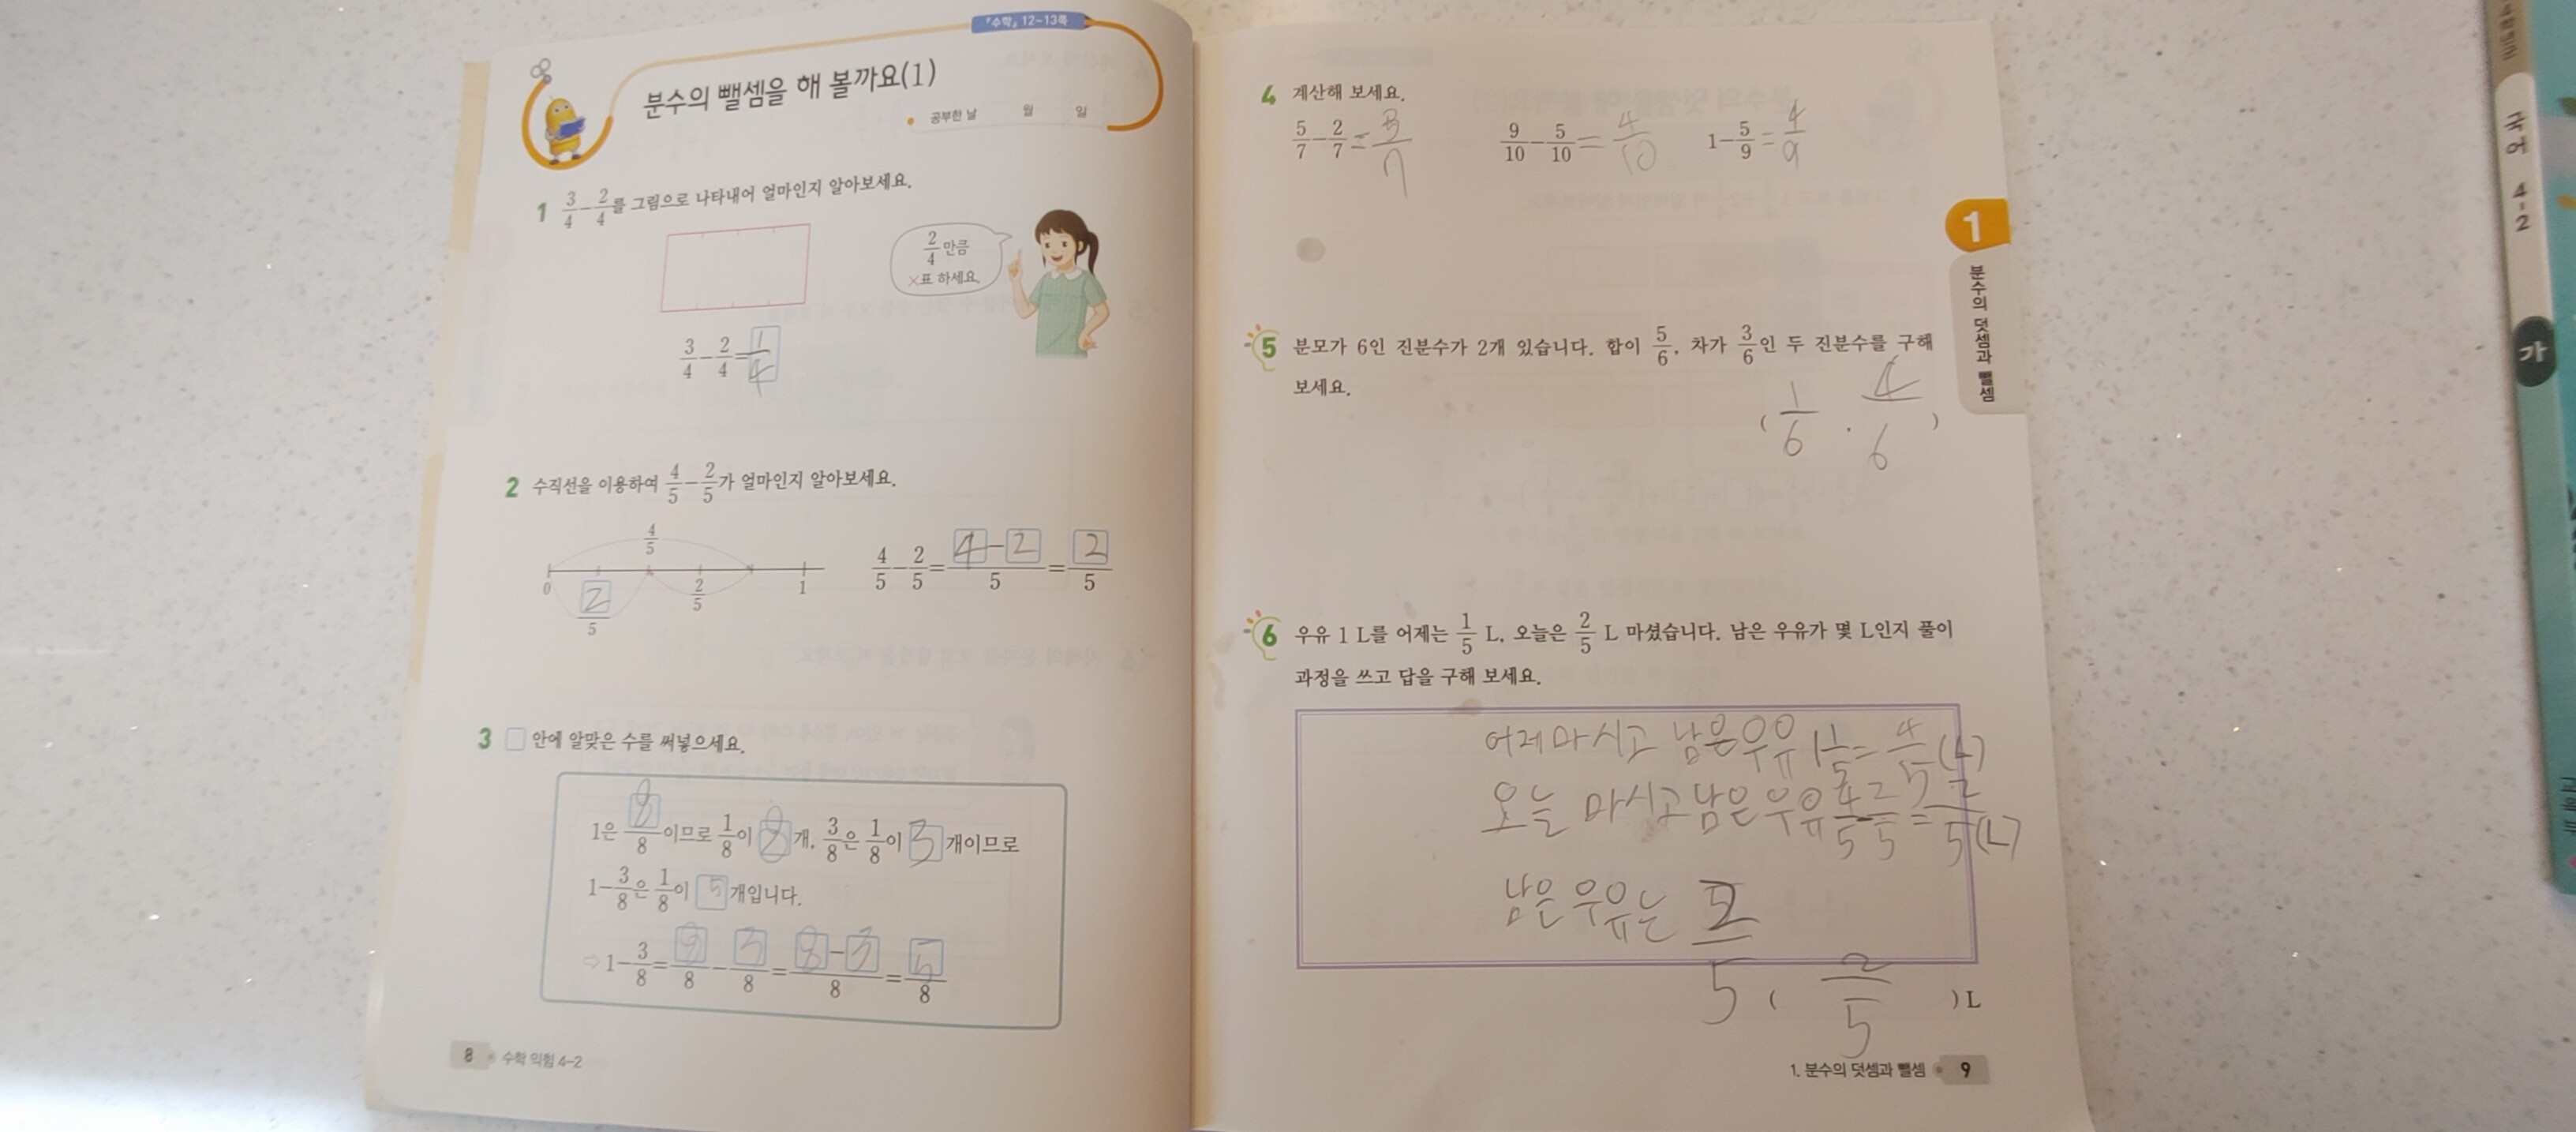 『수학』 12~13쪽
분수의 뺄셈을 해 볼까요(1)
공부한 날 월 일
1 3/4-2/4를 그림으로 나타내어 얼마인지 알아보세요.
2/4만큼
×표 하세요.
3/4-2/4=1/4
2 수직선을 이용하여 4/5-2/5가 얼마인지 알아보세요.
4/5
0 2/5 2/5 1
4/5-2/5=4-2/5=2/5
3 □ 안에 알맞은 수를 써넣으세요.
1은 8/8이므로 1/8이 8개, 3/8은 1/8이 3개이므로
1-3/8은 1/8이 5개입니다.
⇨1-3/8=8/8-3/8=8-3/8=5/8
8 수학 익힘 4-2
4 계산해 보세요.
5/7-2/7=3/7 9/10-5/10=4/10 1-5/9=4/9
5 분모가 6인 진분수가 2개 있습니다. 합이 5/6, 차가 3/6인 두 진분수를 구해
보세요.
(1/6, 4/6)
6 우유 1 L를 어제는 1/5 L, 오늘은 2/5 L 마셨습니다. 남은 우유가 몇 L인지 풀이
과정을 쓰고 답을 구해 보세요.
어제 마시고 남은 우유 1 1/5=4/5(L)
오늘 마시고 남은 우유 4/5-2/5=2/5(L)
남은 우유는 2/5
(2/5)L
1. 분수의 덧셈과 뺄셈 9
1
분수의 덧셈과 뺄셈
국어 4-2
가